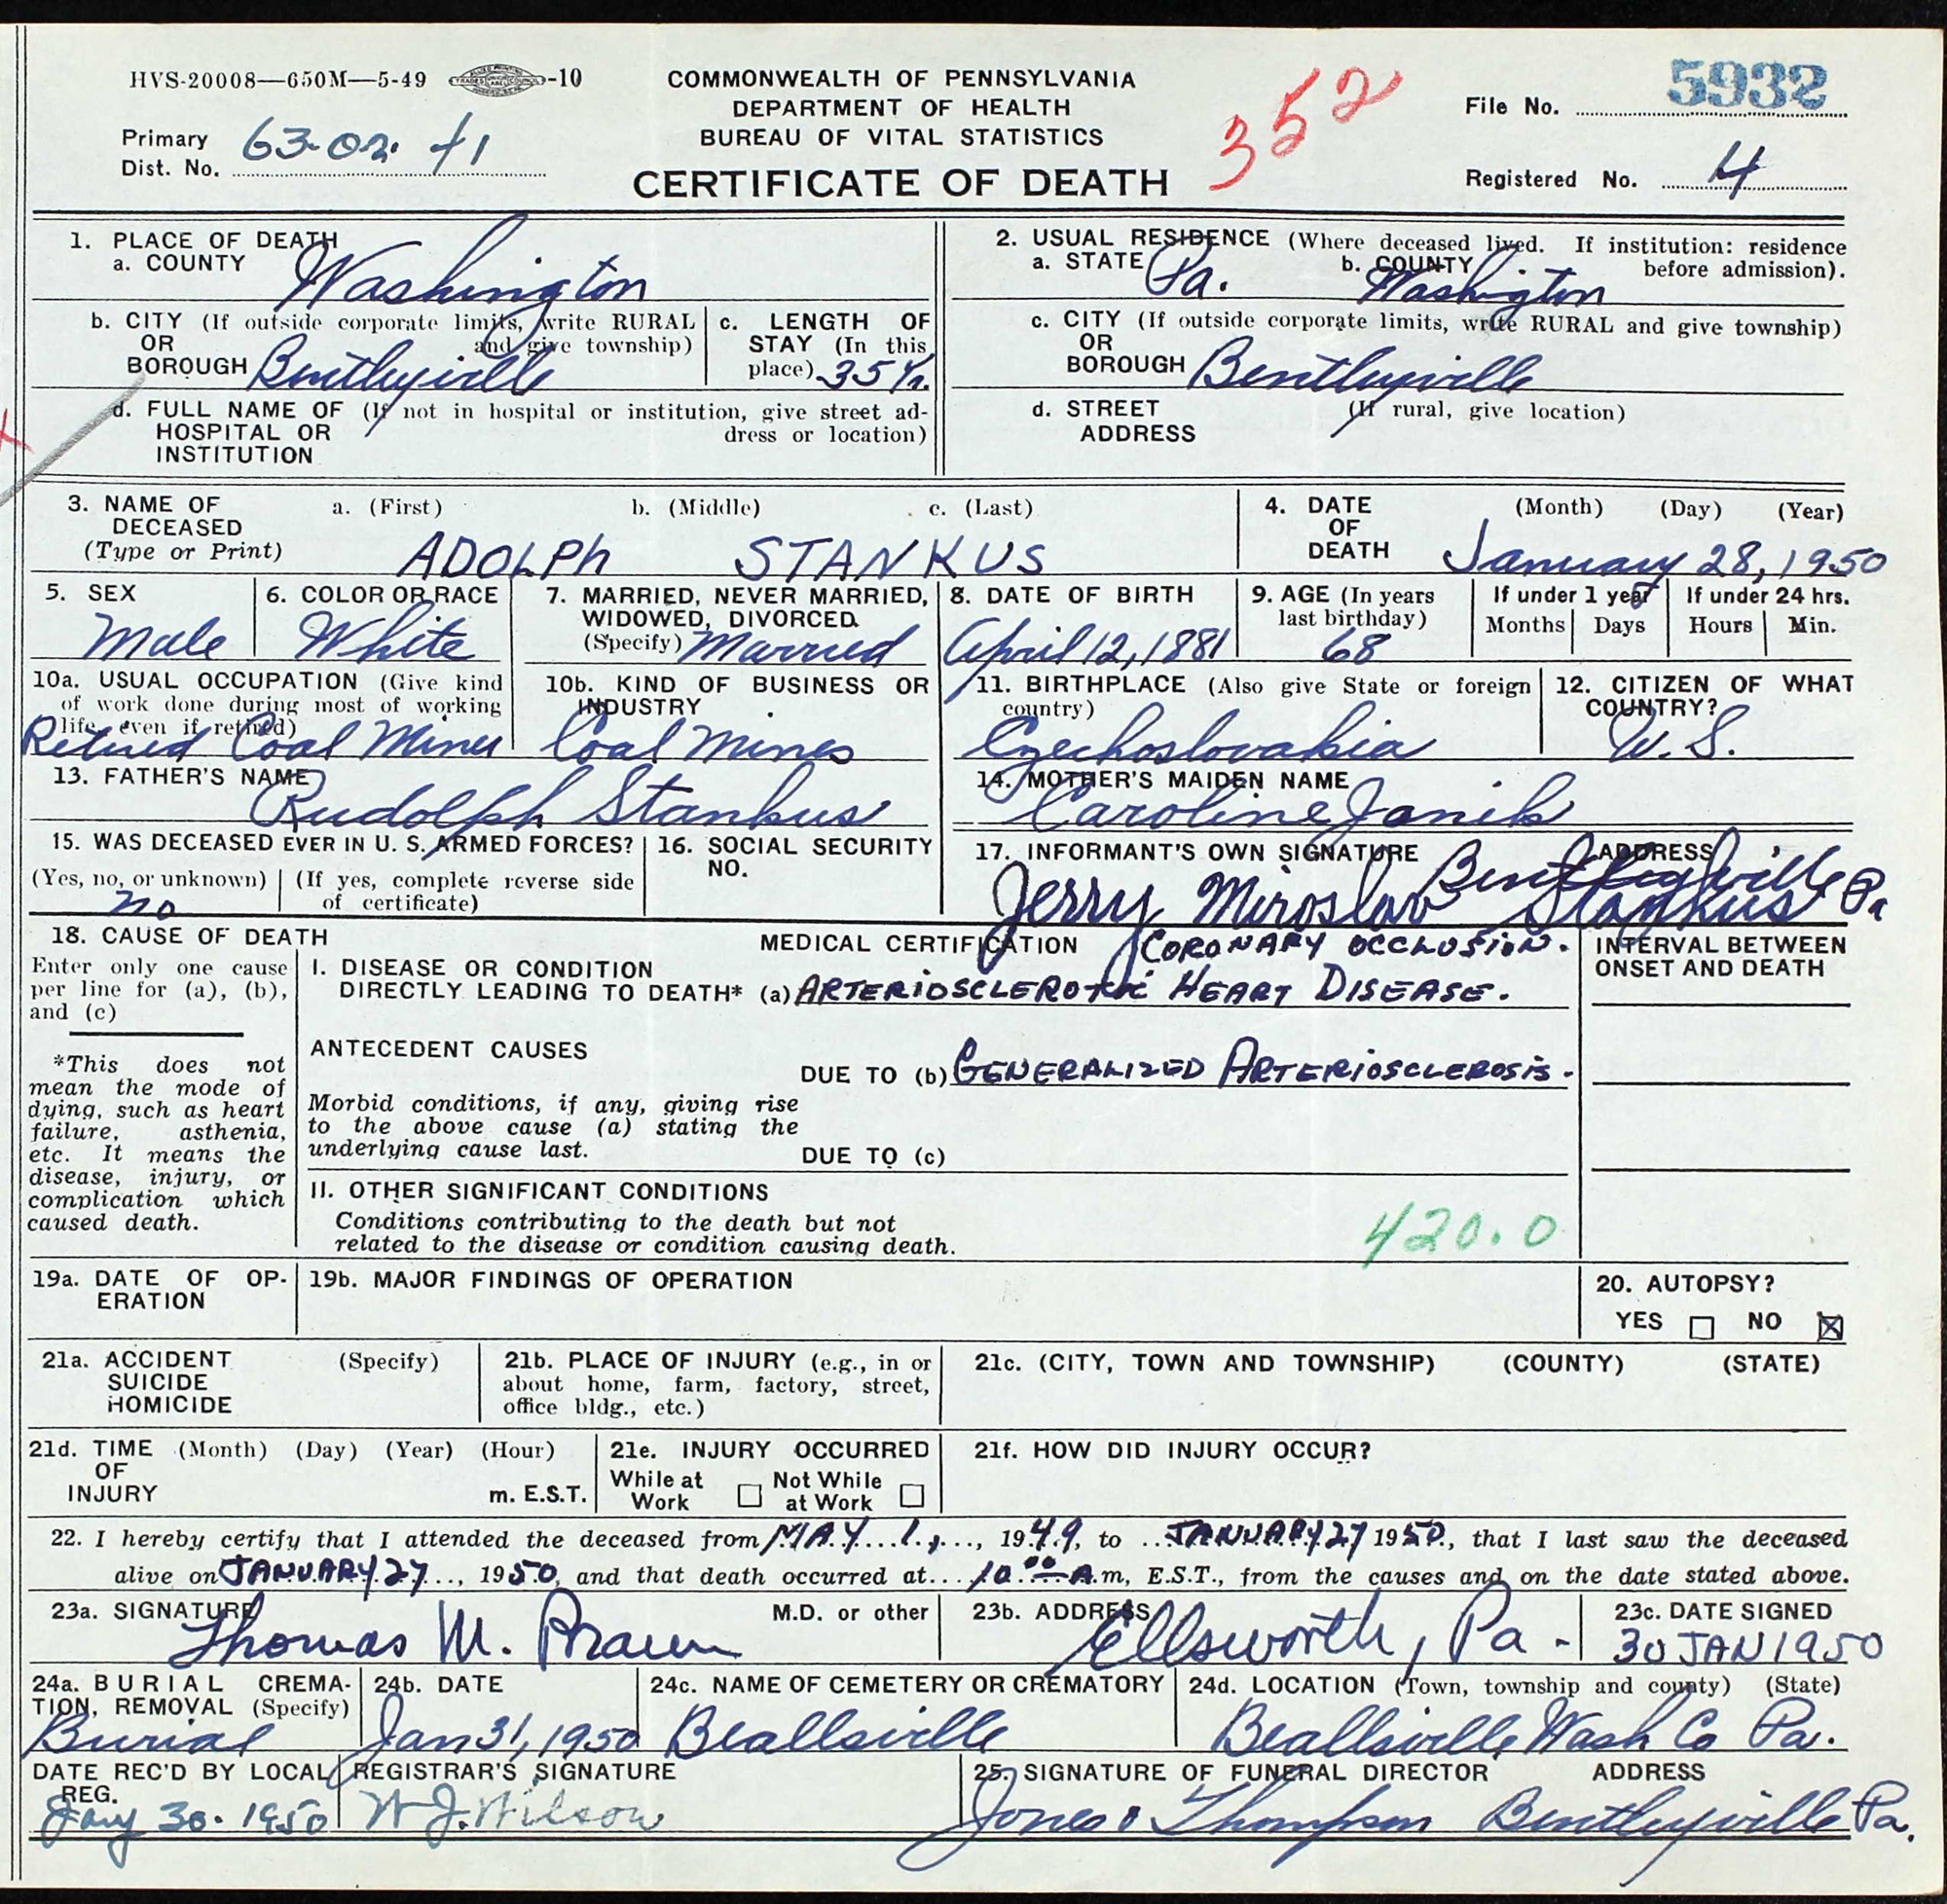 HVS-20008—650M—5-49 -10
COMMONWEALTH OF PENNSYLVANIA
DEPARTMENT OF HEALTH
BUREAU OF VITAL STATISTICS
CERTIFICATE OF DEATH
352
File No. 5932
Primary
Dist. No. 63-02-41
Registered No. 4
1. PLACE OF DEATH
a. COUNTY Washington
2. USUAL RESIDENCE (Where deceased lived. If institution: residence
before admission).
a. STATE Pa. b. COUNTY Washington
b. CITY (If outside corporate limits, write RURAL
OR and give township)
BOROUGH Bentleyville
c. LENGTH OF
STAY (In this
place) 35 Yr.
c. CITY (If outside corporate limits, write RURAL and give township)
OR
BOROUGH Bentleyville
d. FULL NAME OF (If not in hospital or institution, give street ad-
HOSPITAL OR dress or location)
INSTITUTION
d. STREET (If rural, give location)
ADDRESS
3. NAME OF a. (First) b. (Middle) c. (Last)
DECEASED
(Type or Print) ADOLPh STANKUS
4. DATE (Month) (Day) (Year)
OF
DEATH January 28, 1950
5. SEX
Male
6. COLOR OR RACE
White
7. MARRIED, NEVER MARRIED,
WIDOWED, DIVORCED
(Specify) Married
8. DATE OF BIRTH
April 12, 1881
9. AGE (In years
last birthday)
68
If under 1 year
Months Days
If under 24 hrs.
Hours Min.
10a. USUAL OCCUPATION (Give kind
of work done during most of working
life, even if retired)
Retired Coal Miner
10b. KIND OF BUSINESS OR
INDUSTRY
Coal Mines
11. BIRTHPLACE (Also give State or foreign
country)
Czechoslovakia
12. CITIZEN OF WHAT
COUNTRY?
U. S.
13. FATHER'S NAME
Rudolph Stankus
14. MOTHER'S MAIDEN NAME
Caroline Janik
15. WAS DECEASED EVER IN U. S. ARMED FORCES?
(Yes, no, or unknown) (If yes, complete reverse side
of certificate)
no
16. SOCIAL SECURITY
NO.
17. INFORMANT'S OWN SIGNATURE ADDRESS
Bentleyville Pa
Jerry Miroslav Stankus
18. CAUSE OF DEATH
Enter only one cause
per line for (a), (b),
and (c)
*This does not
mean the mode of
dying, such as heart
failure, asthenia,
etc. It means the
disease, injury, or
complication which
caused death.
MEDICAL CERTIFICATION CORONARY OCCLUSION.
I. DISEASE OR CONDITION
DIRECTLY LEADING TO DEATH* (a) ARTERIOSCLEROTIC HEART DISEASE.
ANTECEDENT CAUSES
DUE TO (b) GENERALIZED ARTERIOSCLEROSIS.
Morbid conditions, if any, giving rise
to the above cause (a) stating the
underlying cause last.
DUE TO (c)
II. OTHER SIGNIFICANT CONDITIONS
Conditions contributing to the death but not
related to the disease or condition causing death.
420.0
INTERVAL BETWEEN
ONSET AND DEATH
19a. DATE OF OP-
ERATION
19b. MAJOR FINDINGS OF OPERATION
20. AUTOPSY?
YES NO
21a. ACCIDENT (Specify)
SUICIDE
HOMICIDE
21b. PLACE OF INJURY (e.g., in or
about home, farm, factory, street,
office bldg., etc.)
21c. (CITY, TOWN AND TOWNSHIP) (COUNTY) (STATE)
21d. TIME (Month) (Day) (Year) (Hour)
OF
INJURY m. E.S.T.
21e. INJURY OCCURRED
While at Not While
Work at Work
21f. HOW DID INJURY OCCUR?
22. I hereby certify that I attended the deceased from MAY 1, 1949, to JANUARY 27 1950, that I last saw the deceased
alive on JANUARY 27, 1950, and that death occurred at 10:00 A.m, E.S.T., from the causes and on the date stated above.
23a. SIGNATURE M.D. or other
Thomas M. Braun
23b. ADDRESS
Ellsworth, Pa -
23c. DATE SIGNED
30 JAN 1950
24a. BURIAL CREMA-
TION, REMOVAL (Specify)
Burial
24b. DATE
Jan 31, 1950
24c. NAME OF CEMETERY OR CREMATORY
Beallsville
24d. LOCATION (Town, township and county) (State)
Beallsville Wash Co Pa.
DATE REC'D BY LOCAL
REG.
Jany 30. 1950
REGISTRAR'S SIGNATURE
W J. Wilson
25. SIGNATURE OF FUNERAL DIRECTOR ADDRESS
Jones & Thompson Bentleyville Pa.